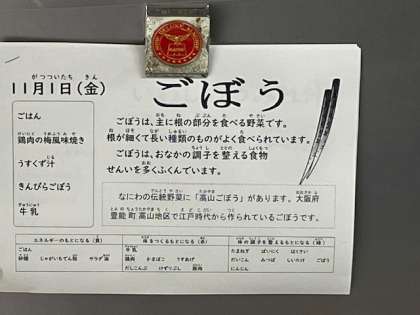 がつついたち きん
11月1日(金)
ごぼう
ごはん
鶏肉の梅風味焼き
うすくず汁
きんぴらごぼう
ぎゅうにゅう
牛乳
ごぼうは、主に根の部分を食べる野菜です。
根が細くて長い種類のものがよく食べられています。
ごぼうは、おなかの調子を整える食物
せんいを多くふくんでいます。
なにわの伝統野菜に「高山ごぼう」があります。大阪府
豊能町高山地区で江戸時代から作られているごぼうです。
エネルギーのもとになる(黄)
体をつくるもとになる(赤)
体の調子を整えるもとになる(緑)
ごはん
砂糖 じゃがいもでん粉 サラダ油
牛乳
鶏肉 かまぼこ うすあげ
だしこんぶ けずりぶし 豚肉
たまねぎ にんにく はくさい
だいこん みつば しいたけ ごぼう
にんじん